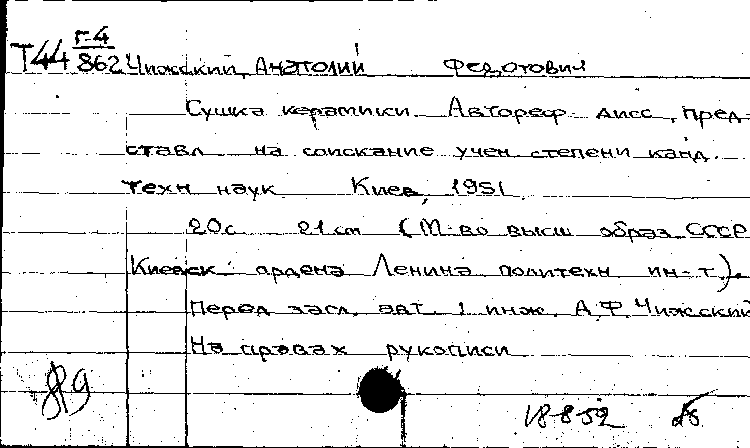 Т44 г-4
862 Чижский, Анатолий Федотович
Сушка керамики. Автореф. дисс., пред-
ставл. на соискание учен степени канд.
техн наук Киев, 1951.
20с. 21см (М-во высш образ. СССР
Киевск. ордена Ленина политехн. ин-т).
Перед загл. авт.: инж. А.Ф. Чижский
На правах рукописи
819
18-8-52